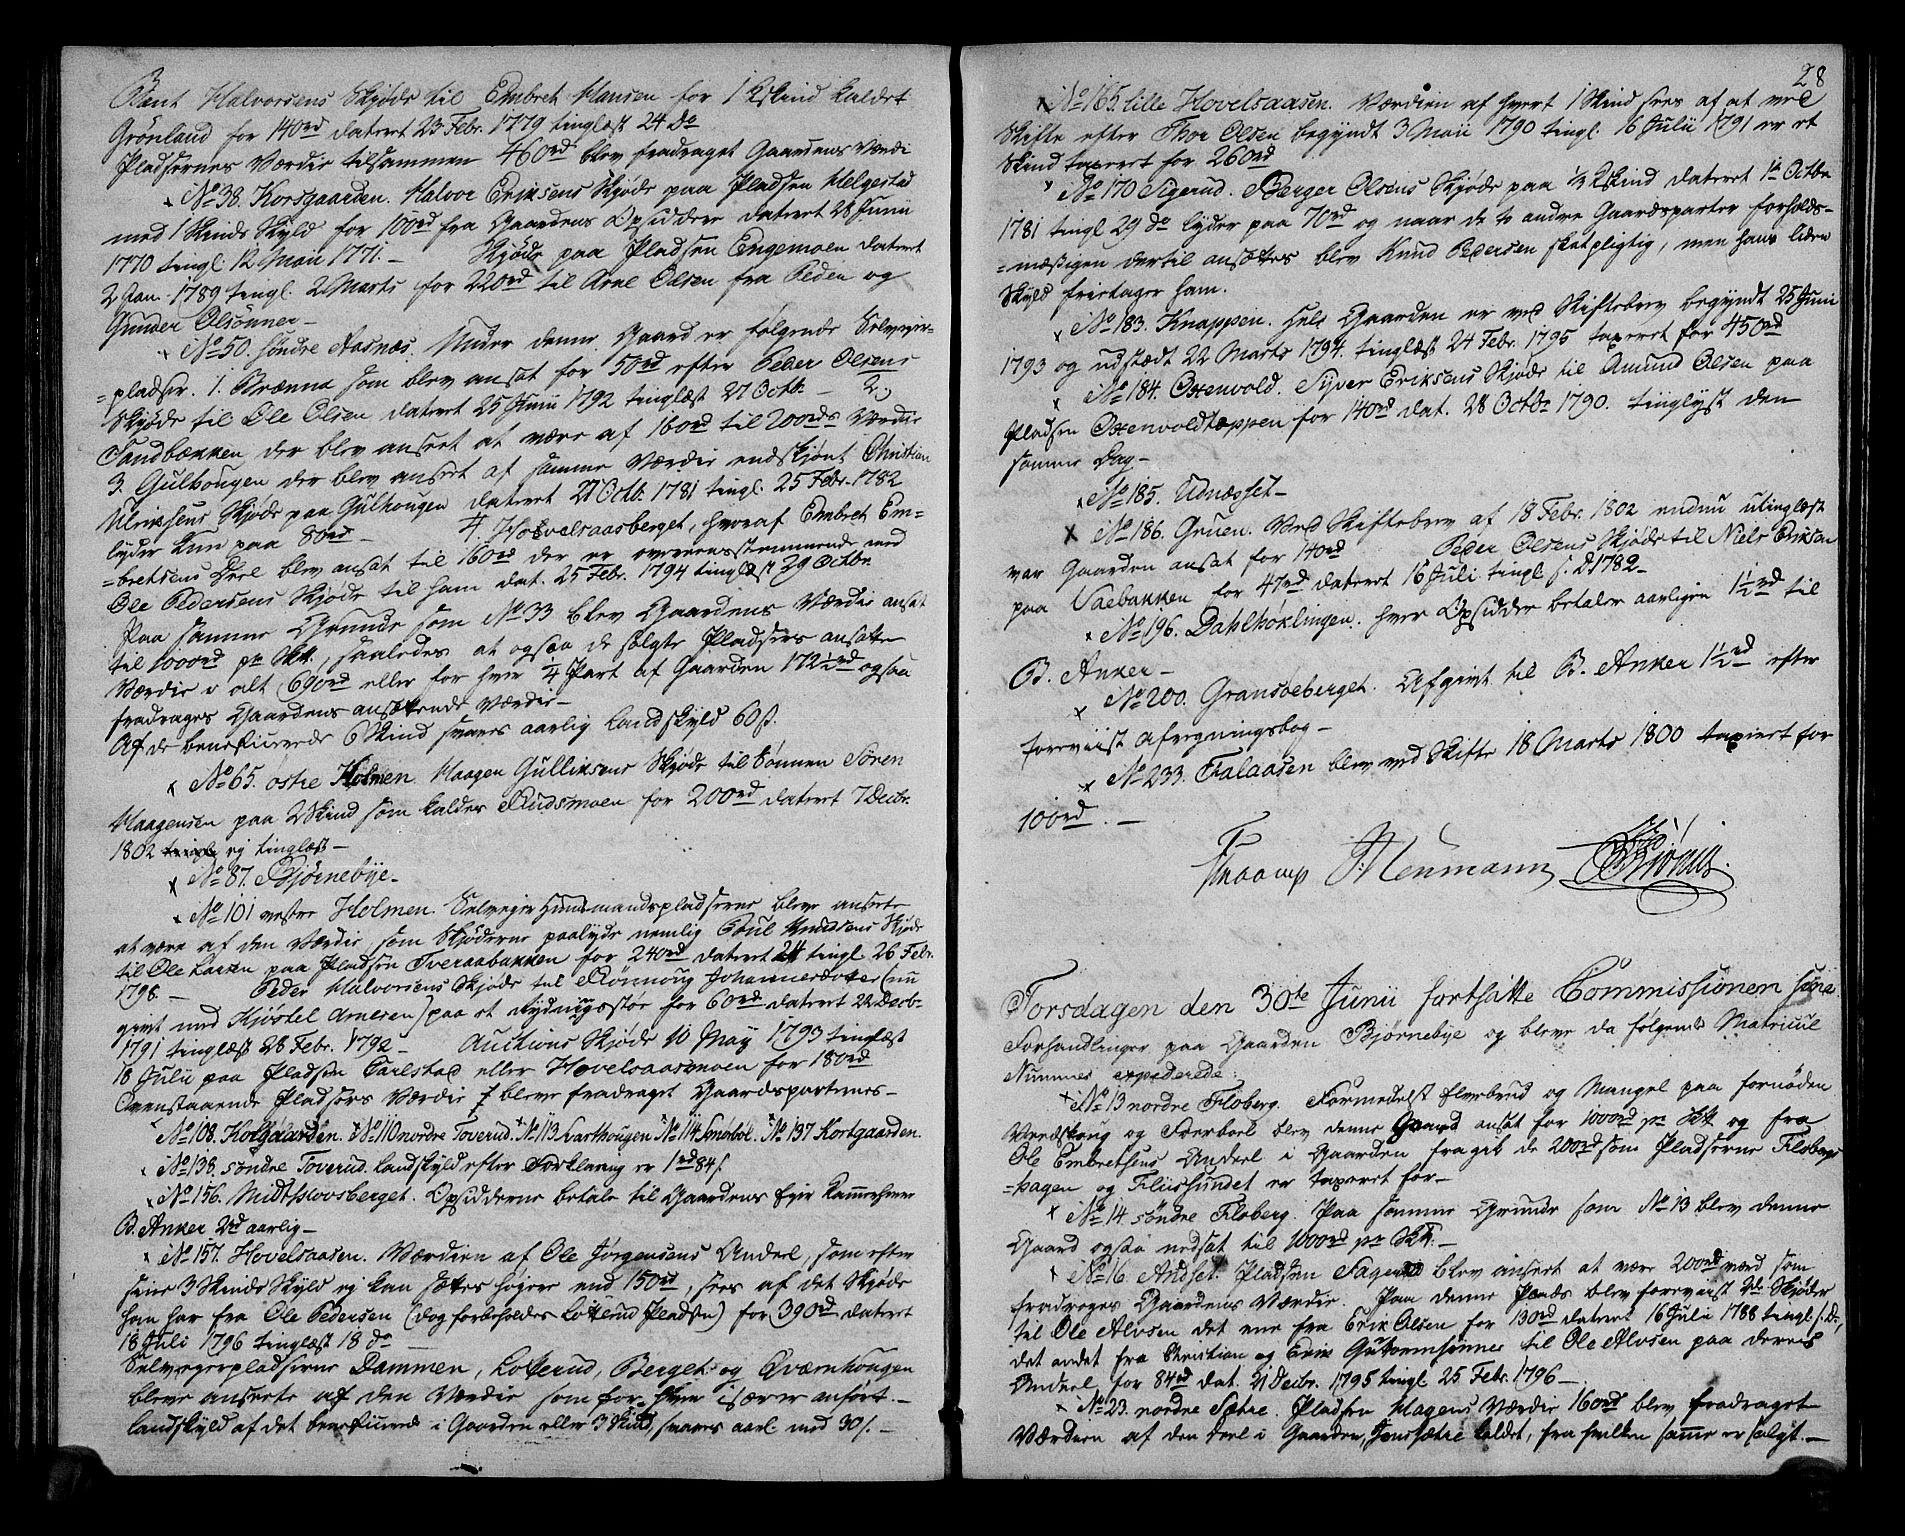 Bent Halvorsens Skjøde til Embret Hansen for 1 Skind kaldet
Grønland for 140rd datert 23 Febr. 1779 tinglæst 24 do
Pladsernes Værdie tilsammen 460rd blev fradraget Gaardens Værdi
No 38. Korsgaarden. Halvor Eriksens Skjøde paa Pladsen Helgestad
med 1 Skinds Skyld for 100rd fra Gaardens Opsiddere datert 28 Junii
1770 tingl. 12 Maii 1771. - Skjøde paa Pladsen Engemoen datert
2 Jan. 1789 tingl. 2 Marts for 220rd til Arne Olsen fra Peder og
Gunder Olsønner -
No 50. søndre Aasnæs. Under denne Gaard er følgende Selveier-
=pladser. 1. Brænna som blev ansat for 50rd efter Peder Olsens
Skjøde til Ole Olsen datert 25 Junii 1792 tinglæst 27 Octb. - 2.)
Sandbækken der blev ansert at være af 160rd til 200rds Værdie
3. Gulhougen der blev ansert af samme Værdie endskjønt Christian
Ulriksens Skjøde paa Gulhougen datert 27 Octb. 1781 tingl. 25 Febr. 1782
lyder kun paa 80rd - 4. Hovelsaasberget, hvoraf Embret Em-
=bretsens Deel blev ansat til 160rd der er overeensstemmende med
Ole Pedersens Skjøde til ham dat. 25 Febr. 1794 tinglæst 29 Octbr.
Paa samme Grunde som No 33 blev Gaardens Værdie ansat
til 1000rd pr Skt., saaledes at ogsaa de solgte Pladsers ansatte
Værdie i alt 690rd eller for hver 1/4 Part af Gaarden 172 1/2 rd ogsaa
fradrages Gaardens ansættende Værdie -
Af de beneficerede 6 Skind svares aarlig Landskyld 60 s.
No 65. østre Holmen. Haagen Gulliksens Skjøde til Sønnen Søren
Haagensen paa 2 Skind som kaldes Rudsmoen for 200rd datert 7 Decbr.
1802 ej tinglæst -
No 87. Bjørnebye -
No 101 vestre Holmen. Selveier Huusmandspladserne bleve anserte
at være af den Værdie, som Skjøderne paalyde nemlig Poul Knudsens Skjøde
til Ole Larsen paa Pladsen Tveraabakken for 240rd datert 24 tingl. 26 Febr.
1798. - Peder Halvorsens Skjøde til Rønnoug Johannesdotter (nu
givt med Kjøstel Arnesen) paa et Rydningsstør for 60rd datert 22 Decb.
1791 tinglæst 28 Febr. 1792 - Auctions Skjøde 10 May 1793 tinglæst
18 Julii paa Pladsen Carlstad eller Hovelsaasmoen for 180rd
Ovenstaaende Pladsers Værdie bleve fradraget Gaardsparternes -
No 108. Kolgaarden. No 110 nordre Toverud. No 113 Svarthougen No 114 Smørbøl. No 137 Kortgaarden.
No 138. søndre Toverud. Landskyld efter Forklaring er 1rd 84 s.
No 156. Midtskovsberget. Opsidderne betale til Gaardens Ejer Kammerherre
B. Anker 2rd aarlig -
No 157. Hovelsaasen. Værdien af Ole Jørgensens Andeel, som efter
sine 3 Skinds Skyld ej kan sættes højere end 150rd, sees af det Skjøde
han har fra Ole Pedersen (dog forbeholdes Lotterud Pladsen) for 390rd datert
18 Juli 1796 tinglæst 18 do
Selvegerpladserne Dammen, Lotterud, Berget og Qværnhougen
bleve anserte af den Værdie som for hver især er anført. -
Landskyld af det beneficerede i Gaarden eller 3 Skind, svares aarl. med 30 s. -
28
No 165. lille Hovelsaasen. Værdien af hvert 1 Skind sees af at ved
Skifte efter Thor Olsen begyndt 3 Maii 1790 tingl. 16 Julii 1791 er et
Skind taxeret for 260rd
No 170 Sigerud. Børger Olsens Skjøde paa 1/2 Skind datert 1te Octbr.
1781 tingl 29 do lyder paa 70rd og naar de to andre Gaardsparter forholds-
=mæssigen dertil ansættes blev Knud Pedersen skatpligtig, men hans liden
Skyld fritager ham.
No 183. Knappen. Hele Gaarden er ved Skiftebrev begyndt 25 Junii
1793 og udstædt 22 Marts 1794. tinglæst 24 Febr. 1795 taxeret for 450rd
No 184. Oxenvold. Syver Eriksens Skjøde til Amund Olsen paa
Pladsen Oxenvoldtoppen for 140rd dat. 28 Octbr 1790. tinglyst den
samme Dag -
No 185. Udnæsset -
No 186. Gruen. Ved Skiftebrev af 18 Febr. 1802 endnu utinglæst
var Gaarden ansat for 140rd Peder Olsens Skjøde til Niels Eriksen
paa Vaebakken for 47rd datert 16 Juli tingl. s. D. 1782 -
No 196. Dahlhøklingen. hver Opsidder betaler aarligen 1 1/2 rd til
B. Anker -
No 200. Gransøeberget. Afgivt til B. Anker 1 1/2 rd efter
foreviist Afregningsbog -
No 233. Falaasen blev ved Skifte 18 Marts 1800 taxeret for
100rd. -
Knoorp J. Neumann
Torsdagen den 30te Junii fortsatte Commissionen sine
Forhandlinger paa Gaarden Bjørnebye og bleve da følgende Matricul
Nummer expederede:
No 13 nordre Floberg. Formedelst Elvebrud og Mangel paa fornøden
Vændskoug og Sæterboel blev denne Gaard ansat for 1000rd pr Skt og fra
Ole Embretsens Andeel i Gaarden fragik de 200rd som Pladserne Flobergs
=hagen og Fliissundet er taxeret for -
No 14 søndre Floberg. Paa samme Grunde som No 13 blev denne
Gaard ogsaa nedsat til 1000rd pr Skt. -
No 16. Andset. Pladsen Hagen blev ansert at være 200rd værd som
fradroges Gaardens Værdie. Paa denne Plads blev foreviist 2de Skjøder
til Ole Alvsen det ene fra Erik Olsen for 130rd datert 16 Julii 1788 tingl. s. D.,
det andet fra Christian og Erik Guttormsønner til Ole Alvsen paa deres
Andeel for 84rd dat. 21 Decbr. 1795 tingl. 25 Febr. 1796 -
No 23. nordre Sætre. Pladsen Hagens Værdie 160rd blev fradraget
Værdien af den Deel i Gaarden, Jonssætre kaldet, fra hvilken samme er solgt. -